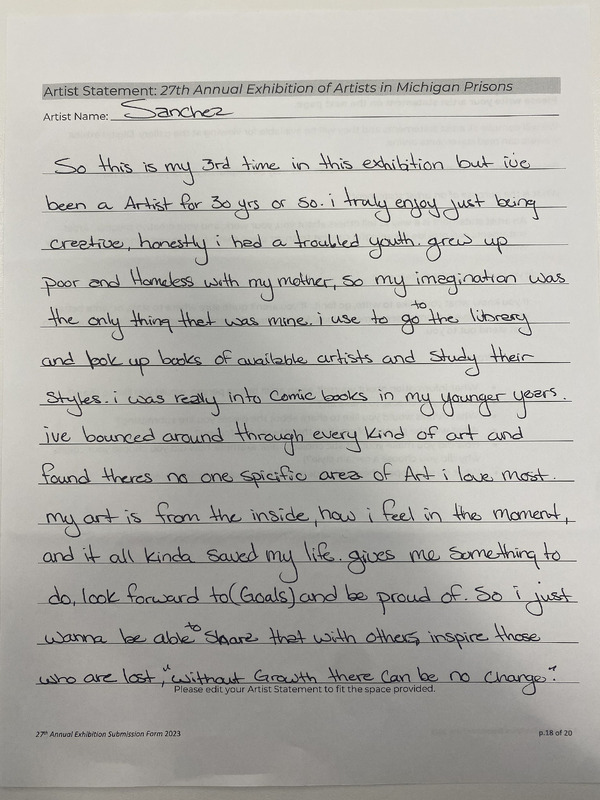 Artist Statement: 27th Annual Exhibition of Artists in Michigan Prisons
Artist Name: Sanchez
So this is my 3rd time in this exhibition but ive
been a Artist for 30 yrs or so. i truly enjoy just being
creative, honestly i had a troubled youth. grew up
poor and Homeless with my mother, so my imagination was
the only thing that was mine. i use to go to the library
and look up books of available artists and study their
styles. i was really into Comic books in my younger years.
ive bounced around through every kind of art and
found theres no one spicific area of Art i love most.
my art is from the inside, how i feel in the moment,
and it all kinda saved my life. gives me something to
do, look forward to (Goals) and be proud of. So i just
wanna be able to share that with others, inspire those
who are lost, "without Growth there can be no change".
Please edit your Artist Statement to fit the space provided.
27th Annual Exhibition Submission Form 2023 p.18 of 20